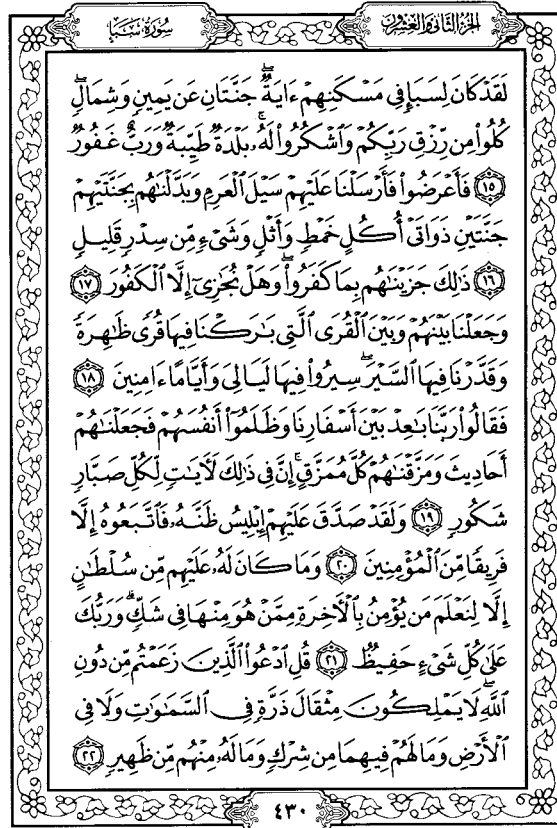 سُورَةُ سَبَإٍ
الجُزءُ الثَّانِي وَالعِشْرُونَ
لَقَدْ كَانَ لِسَبَإٍ فِي مَسْكَنِهِمْ ءَايَةٌ ۖ جَنَّتَانِ عَن يَمِينٍ وَشِمَالٍ ۖ
كُلُوا۟ مِن رِّزْقِ رَبِّكُمْ وَٱشْكُرُوا۟ لَهُۥ ۚ بَلْدَةٌ طَيِّبَةٌ وَرَبٌّ غَفُورٌ
﴿١٥﴾ فَأَعْرَضُوا۟ فَأَرْسَلْنَا عَلَيْهِمْ سَيْلَ ٱلْعَرِمِ وَبَدَّلْنَٰهُم بِجَنَّتَيْهِمْ
جَنَّتَيْنِ ذَوَاتَىْ أُكُلٍ خَمْطٍ وَأَثْلٍ وَشَىْءٍ مِّن سِدْرٍ قَلِيلٍ
﴿١٦﴾ ذَٰلِكَ جَزَيْنَٰهُم بِمَا كَفَرُوا۟ ۖ وَهَلْ نُجَٰزِىٓ إِلَّا ٱلْكَفُورَ ﴿١٧﴾
وَجَعَلْنَا بَيْنَهُمْ وَبَيْنَ ٱلْقُرَى ٱلَّتِى بَٰرَكْنَا فِيهَا قُرًى ظَٰهِرَةً
وَقَدَّرْنَا فِيهَا ٱلسَّيْرَ ۖ سِيرُوا۟ فِيهَا لَيَالِىَ وَأَيَّامًا ءَامِنِينَ ﴿١٨﴾
فَقَالُوا۟ رَبَّنَا بَٰعِدْ بَيْنَ أَسْفَارِنَا وَظَلَمُوٓا۟ أَنفُسَهُمْ فَجَعَلْنَٰهُمْ
أَحَادِيثَ وَمَزَّقْنَٰهُمْ كُلَّ مُمَزَّقٍ ۚ إِنَّ فِى ذَٰلِكَ لَءَايَٰتٍ لِّكُلِّ صَبَّارٍ
شَكُورٍ ﴿١٩﴾ وَلَقَدْ صَدَّقَ عَلَيْهِمْ إِبْلِيسُ ظَنَّهُۥ فَٱتَّبَعُوهُ إِلَّا
فَرِيقًا مِّنَ ٱلْمُؤْمِنِينَ ﴿٢٠﴾ وَمَا كَانَ لَهُۥ عَلَيْهِم مِّن سُلْطَٰنٍ
إِلَّا لِنَعْلَمَ مَن يُؤْمِنُ بِٱلْءَاخِرَةِ مِمَّنْ هُوَ مِنْهَا فِى شَكٍّ ۗ وَرَبُّكَ
عَلَىٰ كُلِّ شَىْءٍ حَفِيظٌ ﴿٢١﴾ قُلِ ٱدْعُوا۟ ٱلَّذِينَ زَعَمْتُم مِّن دُونِ
ٱللَّهِ ۖ لَا يَمْلِكُونَ مِثْقَالَ ذَرَّةٍ فِى ٱلسَّمَٰوَٰتِ وَلَا فِى
ٱلْأَرْضِ وَمَا لَهُمْ فِيهِمَا مِن شِرْكٍ وَمَا لَهُۥ مِنْهُم مِّن ظَهِيرٍ ﴿٢٢﴾
٤٣٠